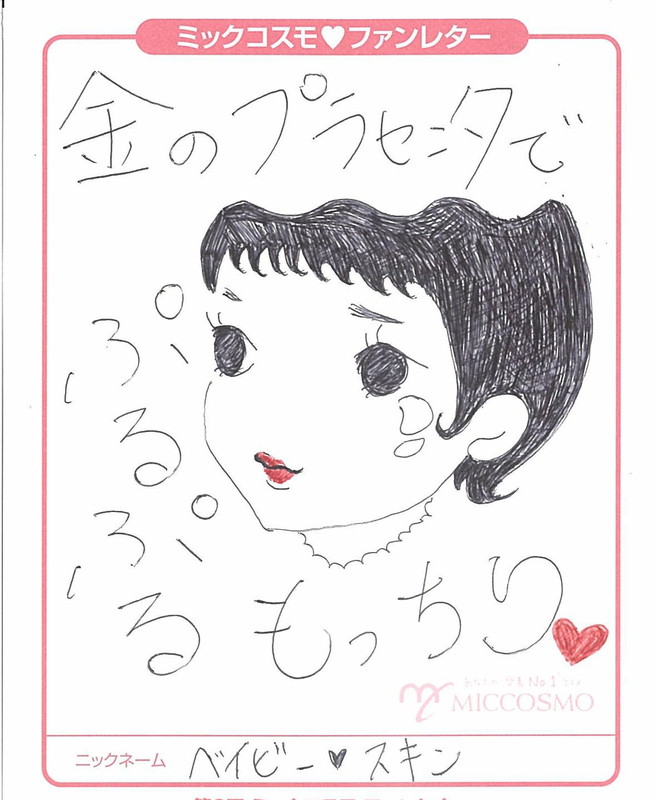 ミックコスモ♥ファンレター
金のプラセンタで
ぷるぷる
もっちり♥
MICCOSMO
ニックネーム ベイビー♥スキン